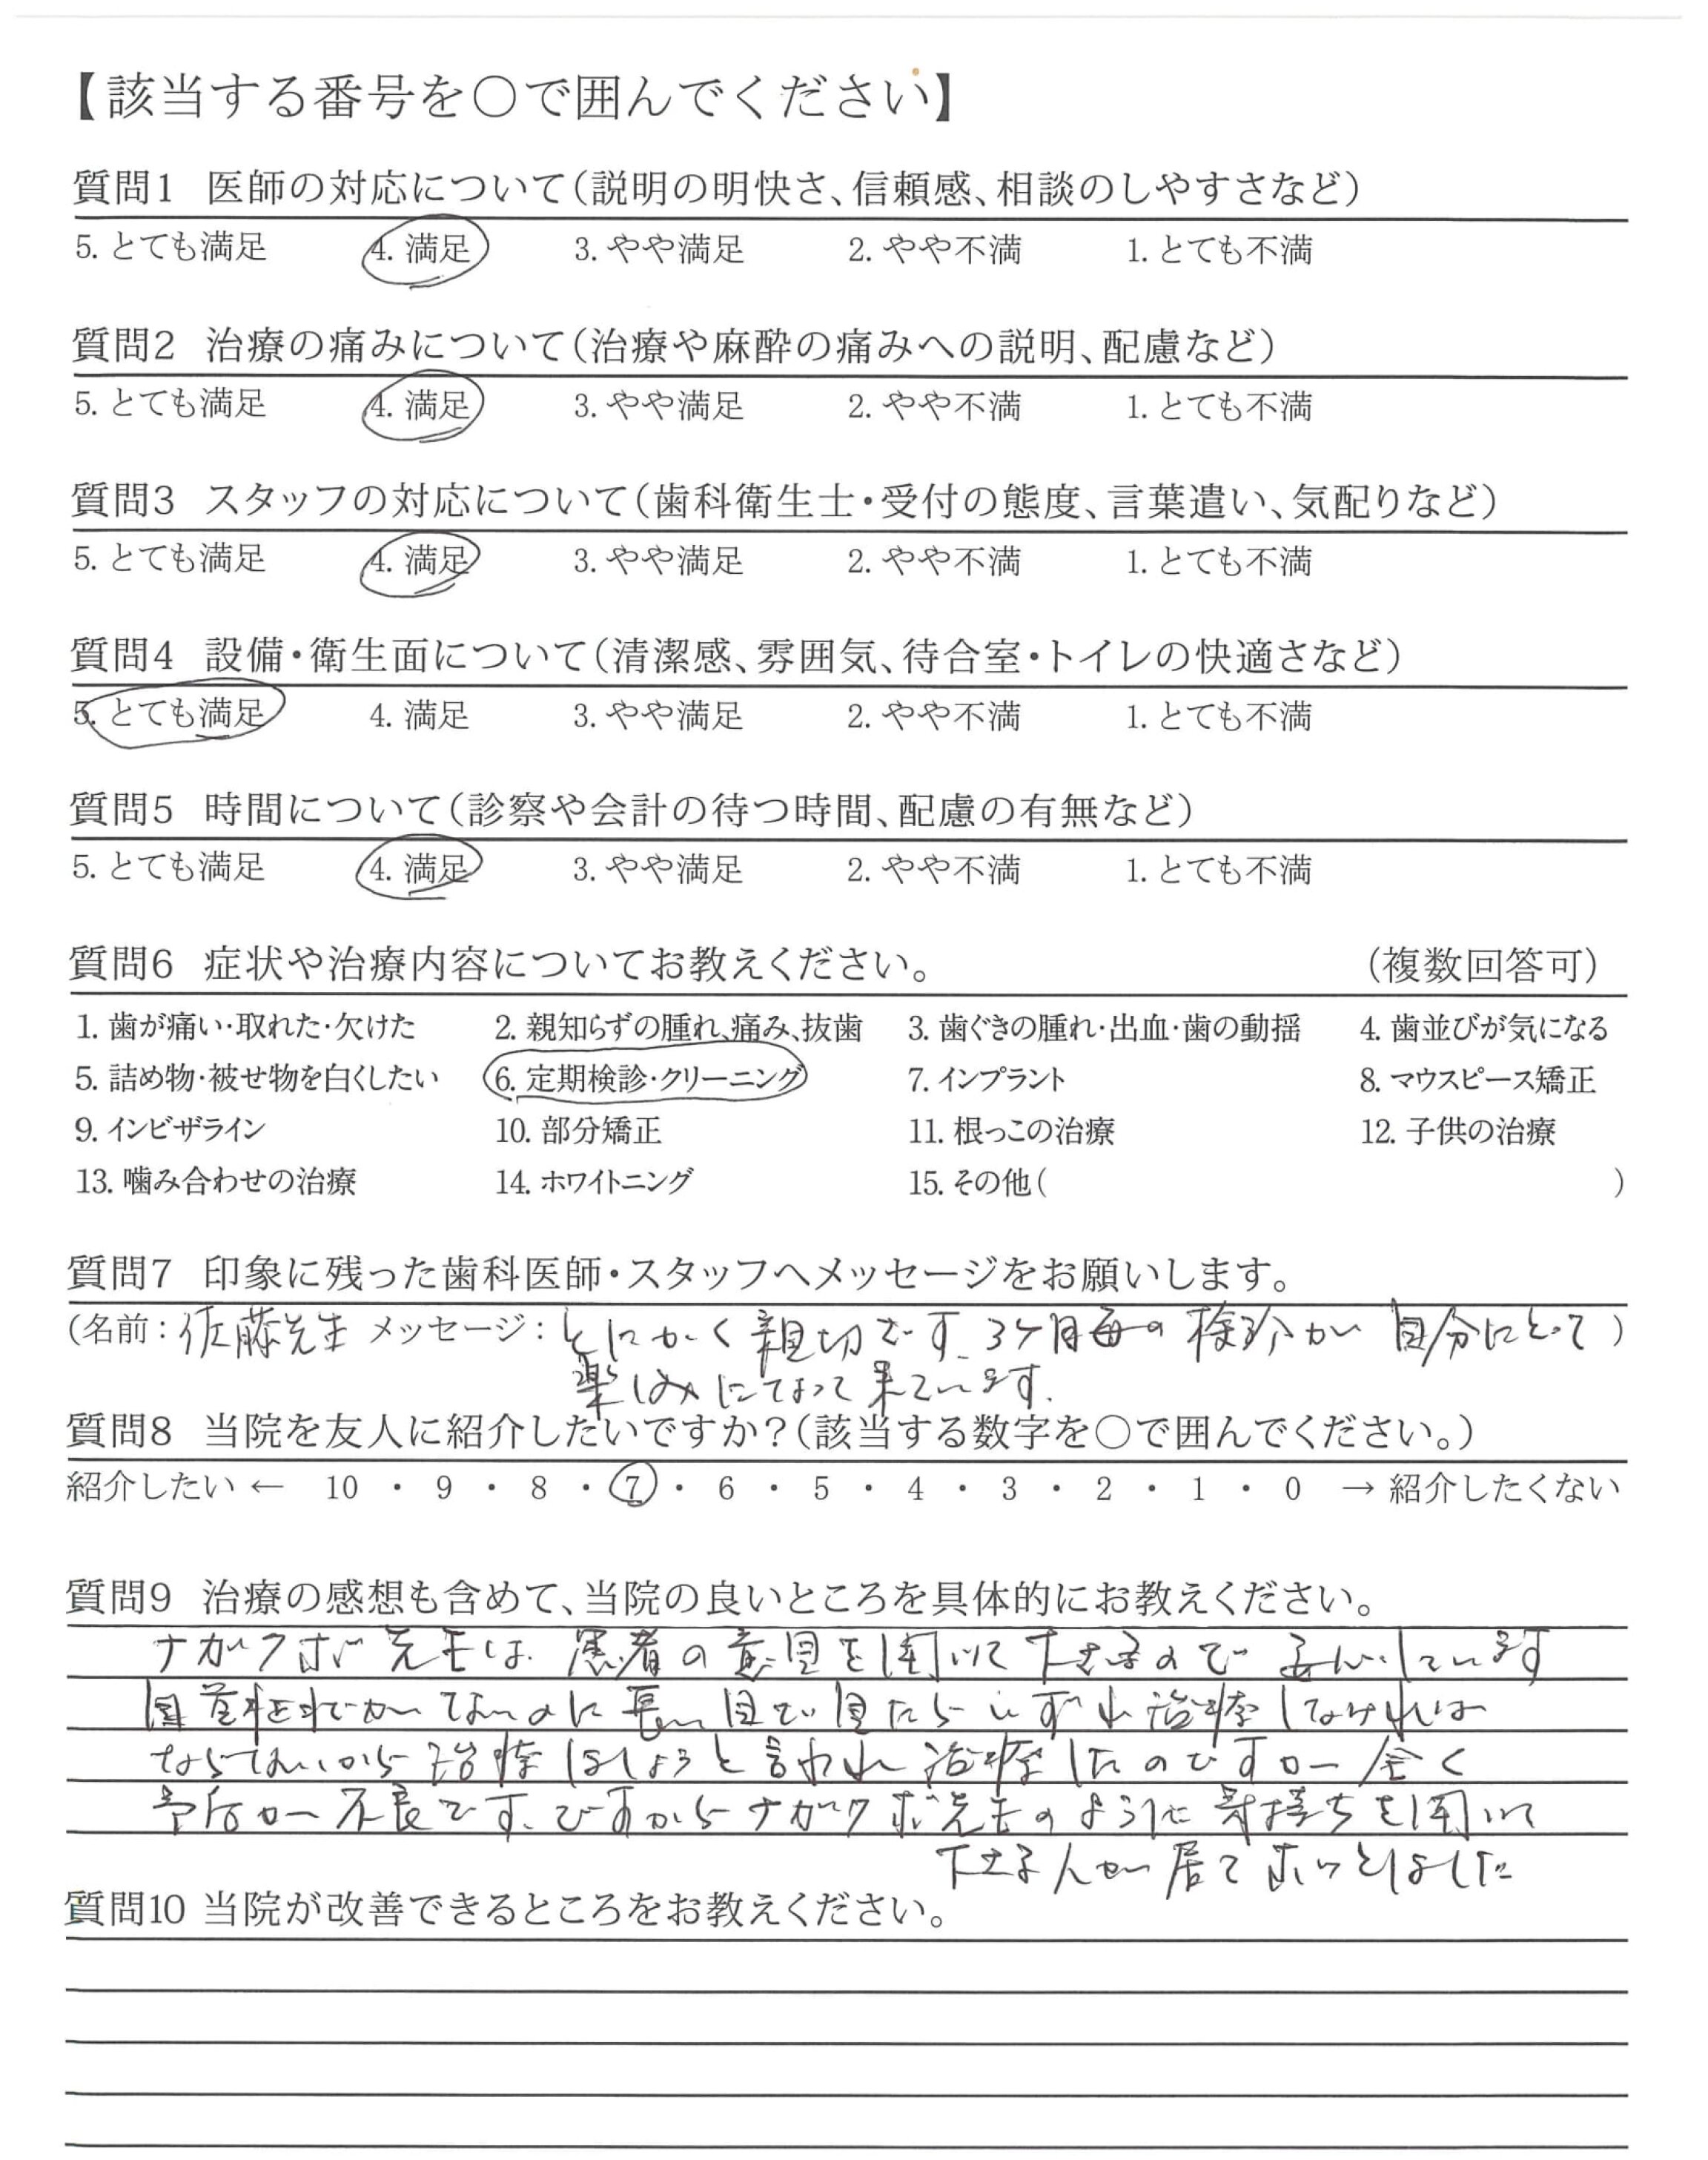 【該当する番号を〇で囲んでください】
質問1 医師の対応について（説明の明快さ、信頼感、相談のしやすさなど）
5. とても満足 4. 満足 3. やや満足 2. やや不満 1. とても不満
質問2 治療の痛みについて（治療や麻酔の痛みへの説明、配慮など）
5. とても満足 4. 満足 3. やや満足 2. やや不満 1. とても不満
質問3 スタッフの対応について（歯科衛生士・受付の態度、言葉遣い、気配りなど）
5. とても満足 4. 満足 3. やや満足 2. やや不満 1. とても不満
質問4 設備・衛生面について（清潔感、雰囲気、待合室・トイレの快適さなど）
5. とても満足 4. 満足 3. やや満足 2. やや不満 1. とても不満
質問5 時間について（診察や会計の待つ時間、配慮の有無など）
5. とても満足 4. 満足 3. やや満足 2. やや不満 1. とても不満
質問6 症状や治療内容についてお教えください。 （複数回答可）
1. 歯が痛い・取れた・欠けた 2. 親知らずの腫れ、痛み、抜歯 3. 歯ぐきの腫れ・出血・歯の動揺 4. 歯並びが気になる
5. 詰め物・被せ物を白くしたい 6. 定期検診・クリーニング 7. インプラント 8. マウスピース矯正
9. インビザライン 10. 部分矯正 11. 根っこの治療 12. 子供の治療
13. 噛み合わせの治療 14. ホワイトニング 15. その他（ ）
質問7 印象に残った歯科医師・スタッフへメッセージをお願いします。
（名前：佐藤先生 メッセージ：とにかく親切です。3ヶ月毎の検診が自分にとって）
楽しみになって来ています。
質問8 当院を友人に紹介したいですか？（該当する数字を〇で囲んでください。）
紹介したい ← 10 ・ 9 ・ 8 ・ 7 ・ 6 ・ 5 ・ 4 ・ 3 ・ 2 ・ 1 ・ 0 → 紹介したくない
質問9 治療の感想も含めて、当院の良いところを具体的にお教えください。
ナガクボ先生は、患者の意見を聞いて下さるので安心しています
ないのに長い目で見たらいずれ治療しなければ
ならないから治療しましょうと言われ治療したのですが全く
予后が不良です。ですからナガクボ先生のように気持ちを聞いて
下さる人が居てホッとしました
質問10 当院が改善できるところをお教えください。